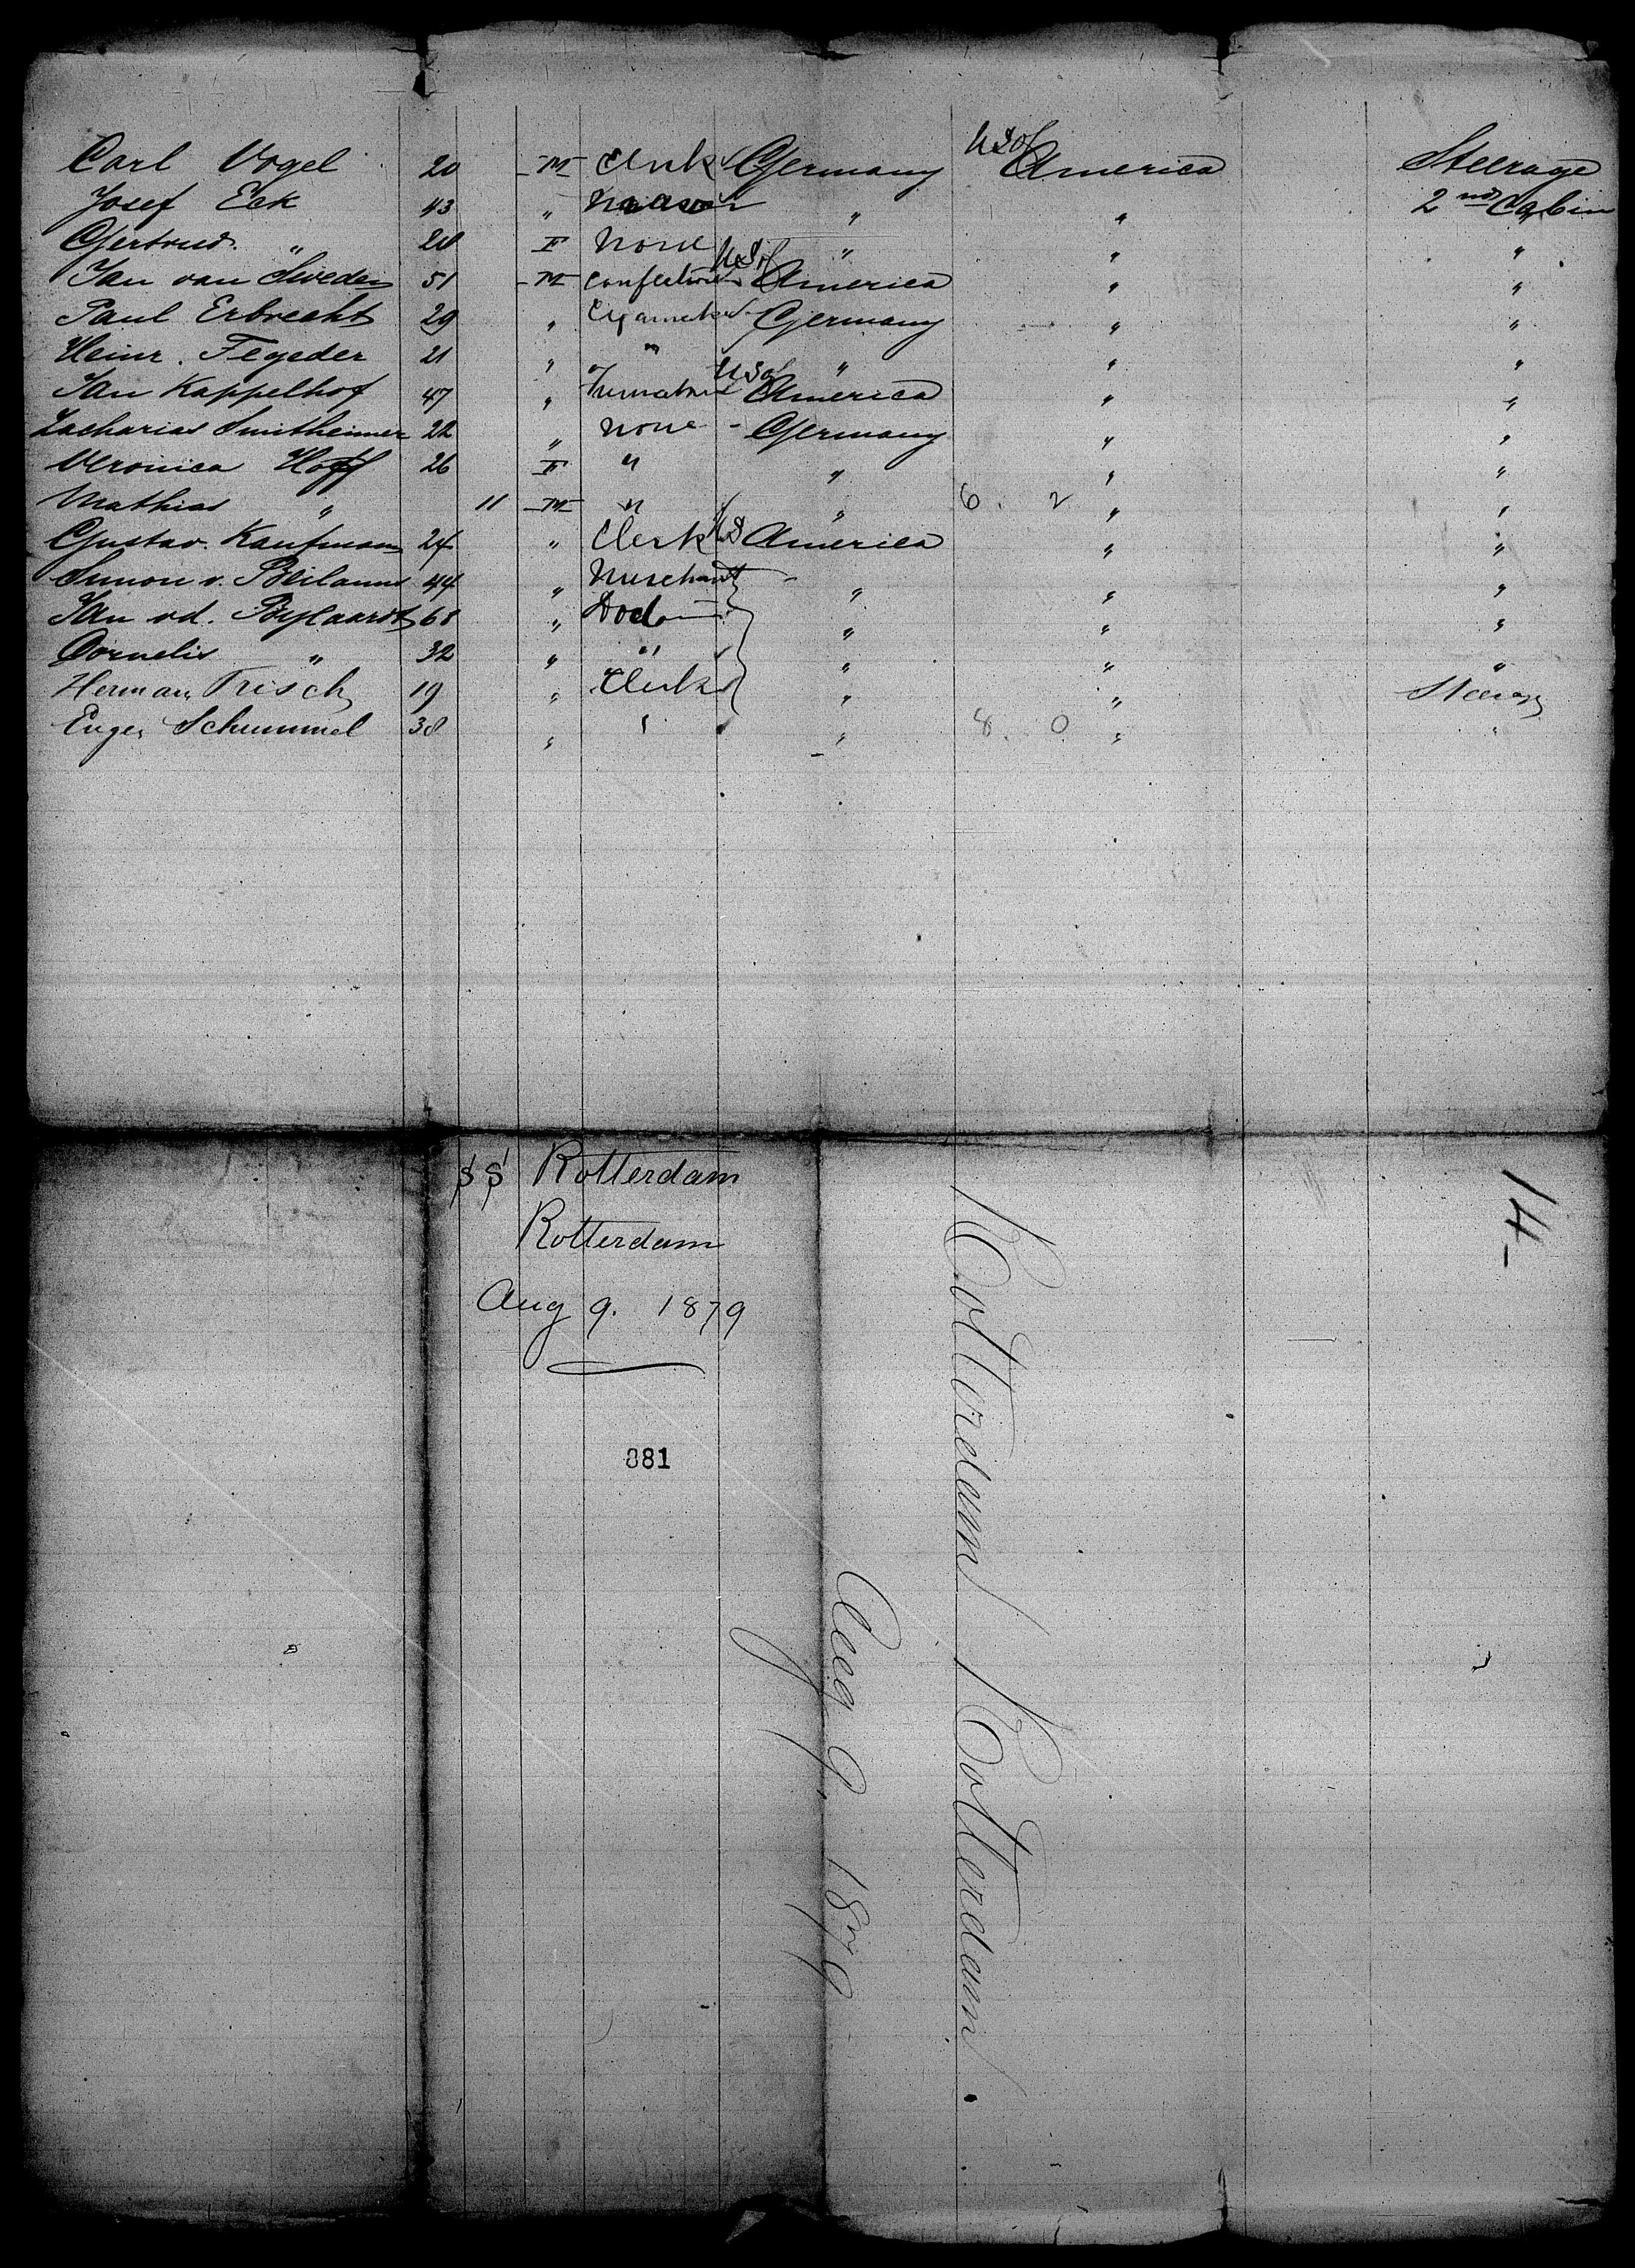 Carl Vogel 20 M Clerk Germany U S of America Steerage
Josef Eck 43 " Mason " " 2nd Cabin
Gertrud " 20 F None " " "
Jan van Sweden 51 M U S of America " "
Paul Erbrecht 29 " Germany " "
Heinr. Fegeder 21 " " " " "
Jan Kappelhof 47 " U S of America " "
Zacharias Smitheimer 22 " None - Germany " "
Veronica Hoff 26 F " " " "
Mathias " 11 M " " 6. 2 " "
Gustav. Kaufmann 24 " Clerk U S America " "
Simon v. 44 " Merchant " " "
Jan vd. 68 " " " "
Cornelis " 32 " " " " "
Herman Frisch 19 " Clerk " " Steerage
Schummel 38 " " " 8. 0 " "
SS Rotterdam
Rotterdam
Aug 9. 1879
881
Rotterdam Rotterdam.
Aug 9. 1879
14